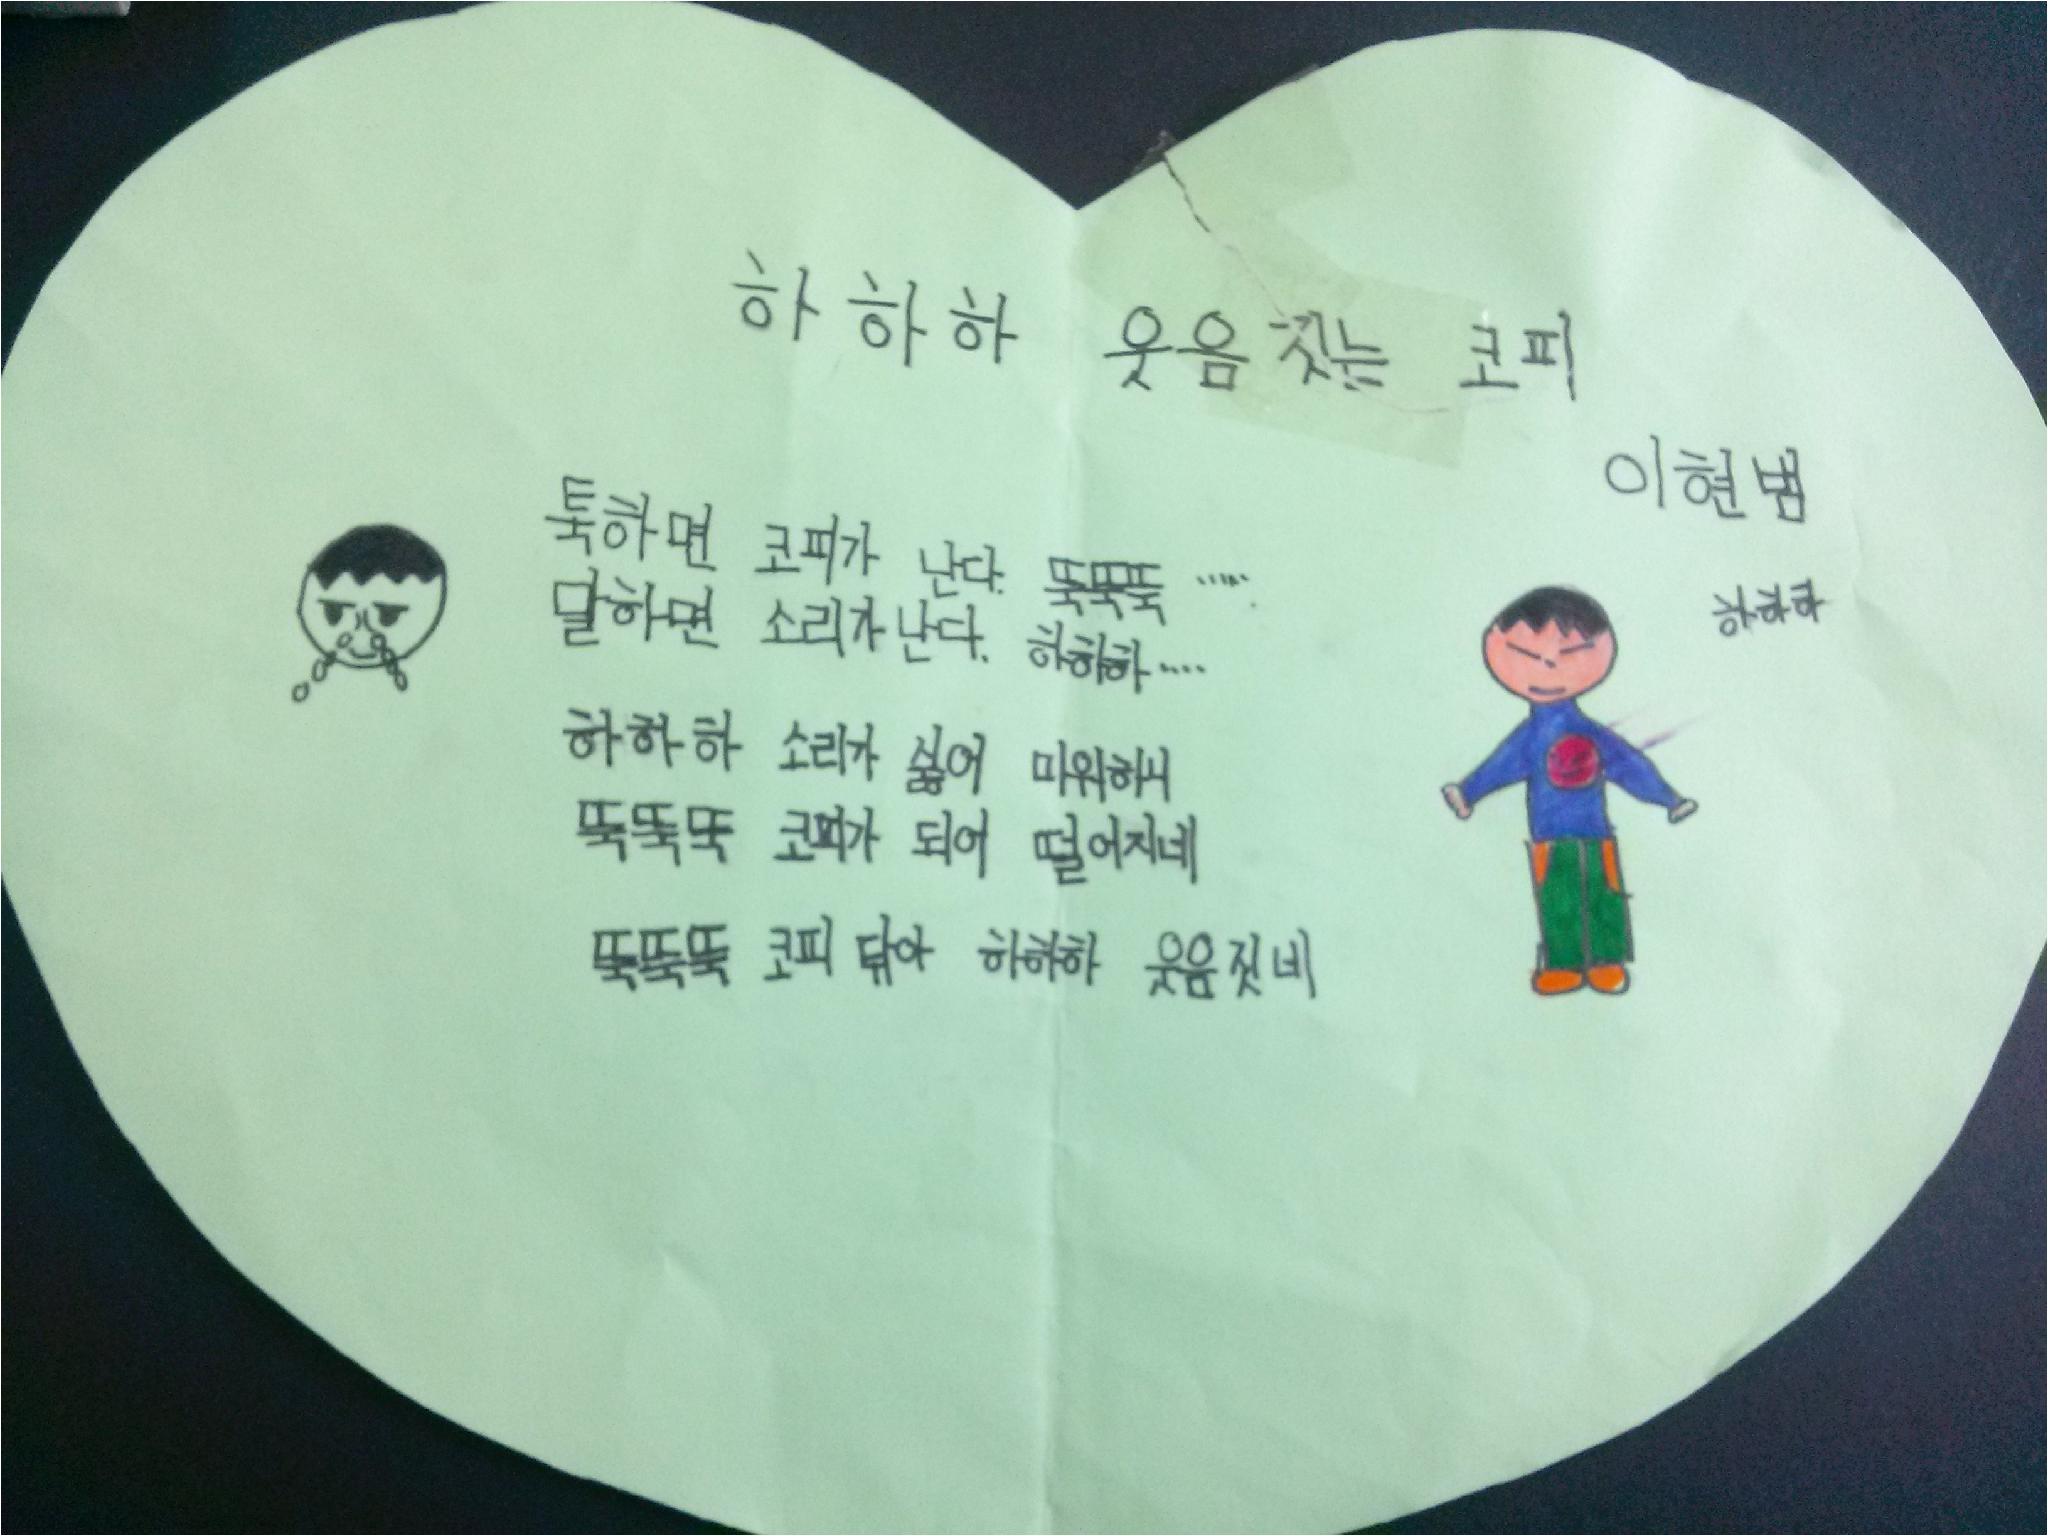 하하하 웃음 짓는 코피
이현범
툭하면 코피가 난다. 뚝뚝뚝 .....
말하면 소리가 난다. 하하하 ....
하하하
하하하 소리가 싫어 미워하니
뚝뚝뚝 코피가 되어 떨어지네
뚝뚝뚝 코피 닦아 하하하 웃음 짓네